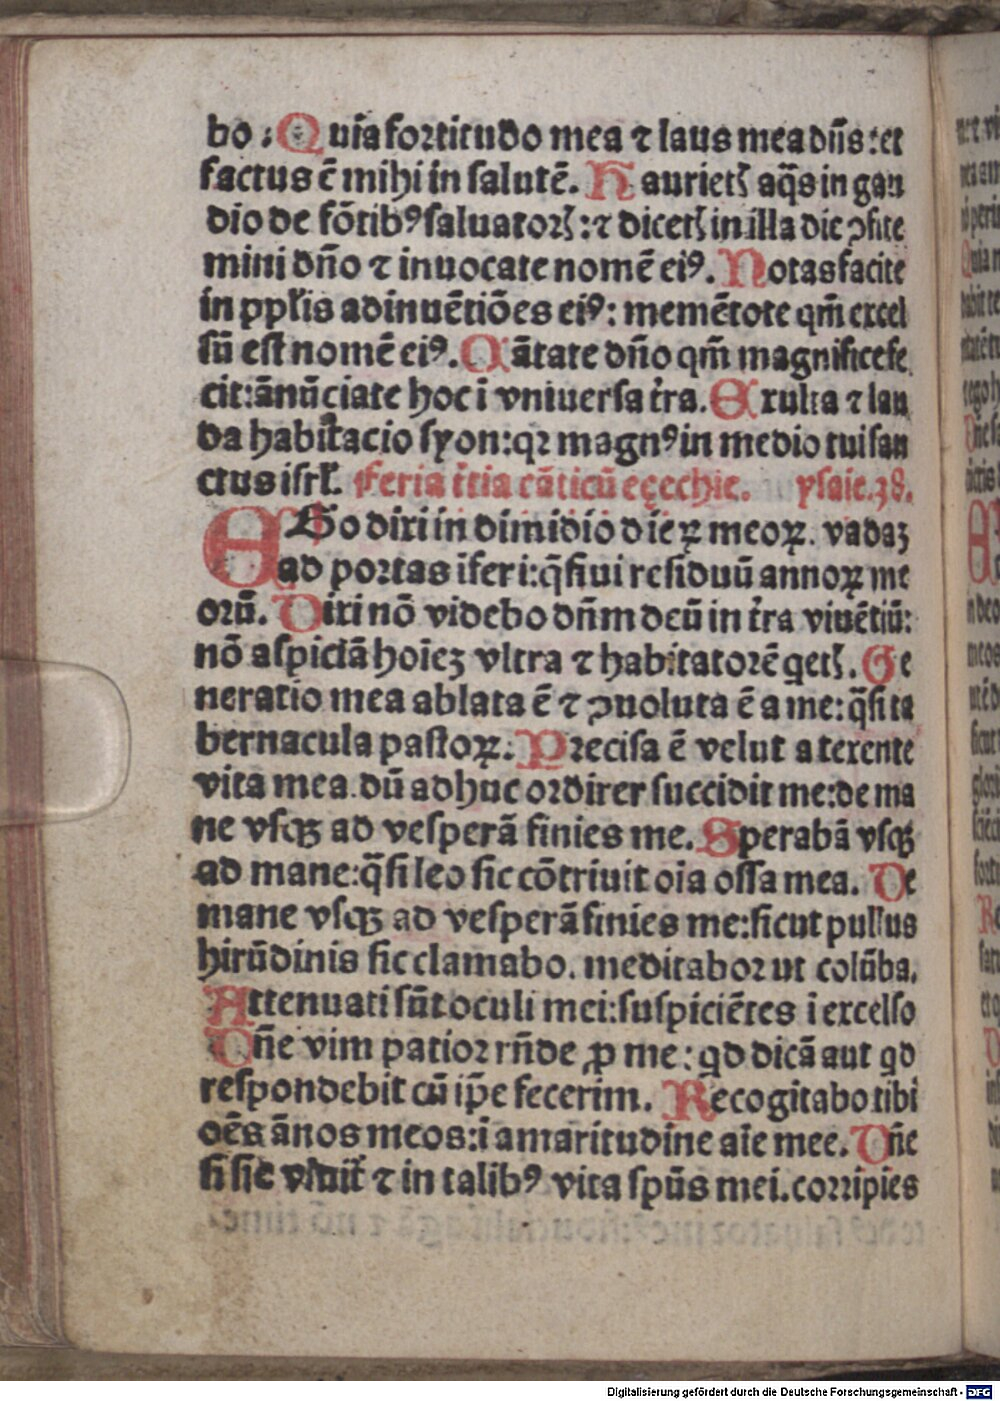 bo : Quia fortitudo mea ⁊ laus mea dñs : et
factus ē mihi in salutē. Haurietꝭ aq̄s in gau
dio de fōtibꝰ saluatorꝭ : ⁊ dicetꝭ in illa die ꝯfite
mini dño ⁊ inuocate nomē eiꝰ. Notas facite
in pplis adinuētiōes eiꝰ : memētote qm̄ excel
sū est nomē eiꝰ. Cātate dño qm̄ magnifice fe
cit : ānūciate hoc ī vniuersa tr̄a. Exulta ⁊ lau
da habitacio syon : qꝛ magnꝰ in medio tui san
ctus isrl̄. Feria tt̄ia cāticū eȩechie. ysaie. 38.
EGo dixi in dimidio dieꝝ meoꝝ. vadaꝫ
ad portas īferi : q̄siui residuū annoꝝ me
orū. Dixi nō videbo dn̄m deū in tr̄a viuētiū :
nō aspiciā hoīeꝫ vltra ⁊ habitatorē qetꝭ. Ge
neratio mea ablata ē ⁊ ꝯuoluta ē a me : q̄si ta
bernacula pastoꝝ. Precisa ē velut a texente
vita mea. dū adhuc ordirer succidit me : de ma
ne vsqꝫ ad vesperā finies me. Sperabā vsqꝫ
ad mane : q̄si leo sic cōtriuit oīa ossa mea. De
mane vsqꝫ ad vesperā finies me : sicut pullus
hirūdinis sic clamabo. meditabor ut colūba.
Attenuati sūt oculi mei : suspiciētes ī excelso
Dn̄e vim patior rn̄de ꝓ me : qd dicā aut qd
respondebit cū ip̄e fecerim. Recogitabo tibi
oēs ānos meos : ī amaritudine aīe mee. Dn̄e
si sic viuit̄ ⁊ in talibꝰ vita spūs mei. corripies
Digitalisierung gefördert durch die Deutsche Forschungsgemeinschaft - DFG